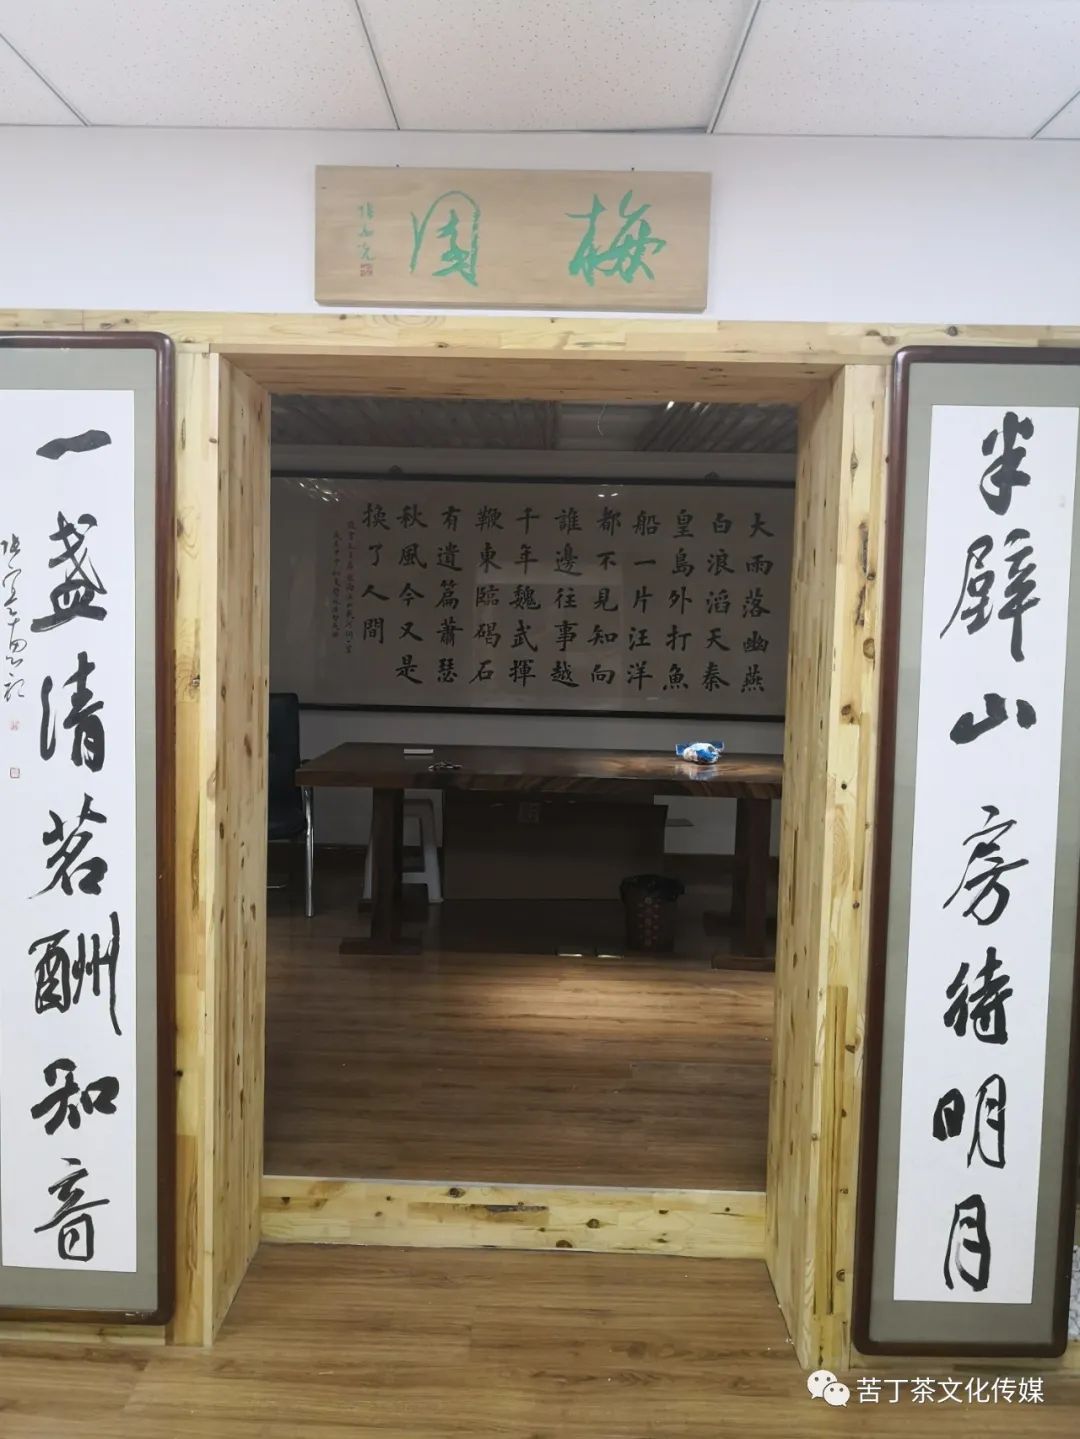 梅園
半壁山房待明月
一盏清茗酬知音
大雨落幽燕
白浪滔天秦
皇島外打魚
船一片汪洋
都不見知向
誰邊往事越
千年魏武揮
鞭東臨碣石
有遺篇蕭瑟
秋風今又是
換了人間
苦丁茶文化传媒